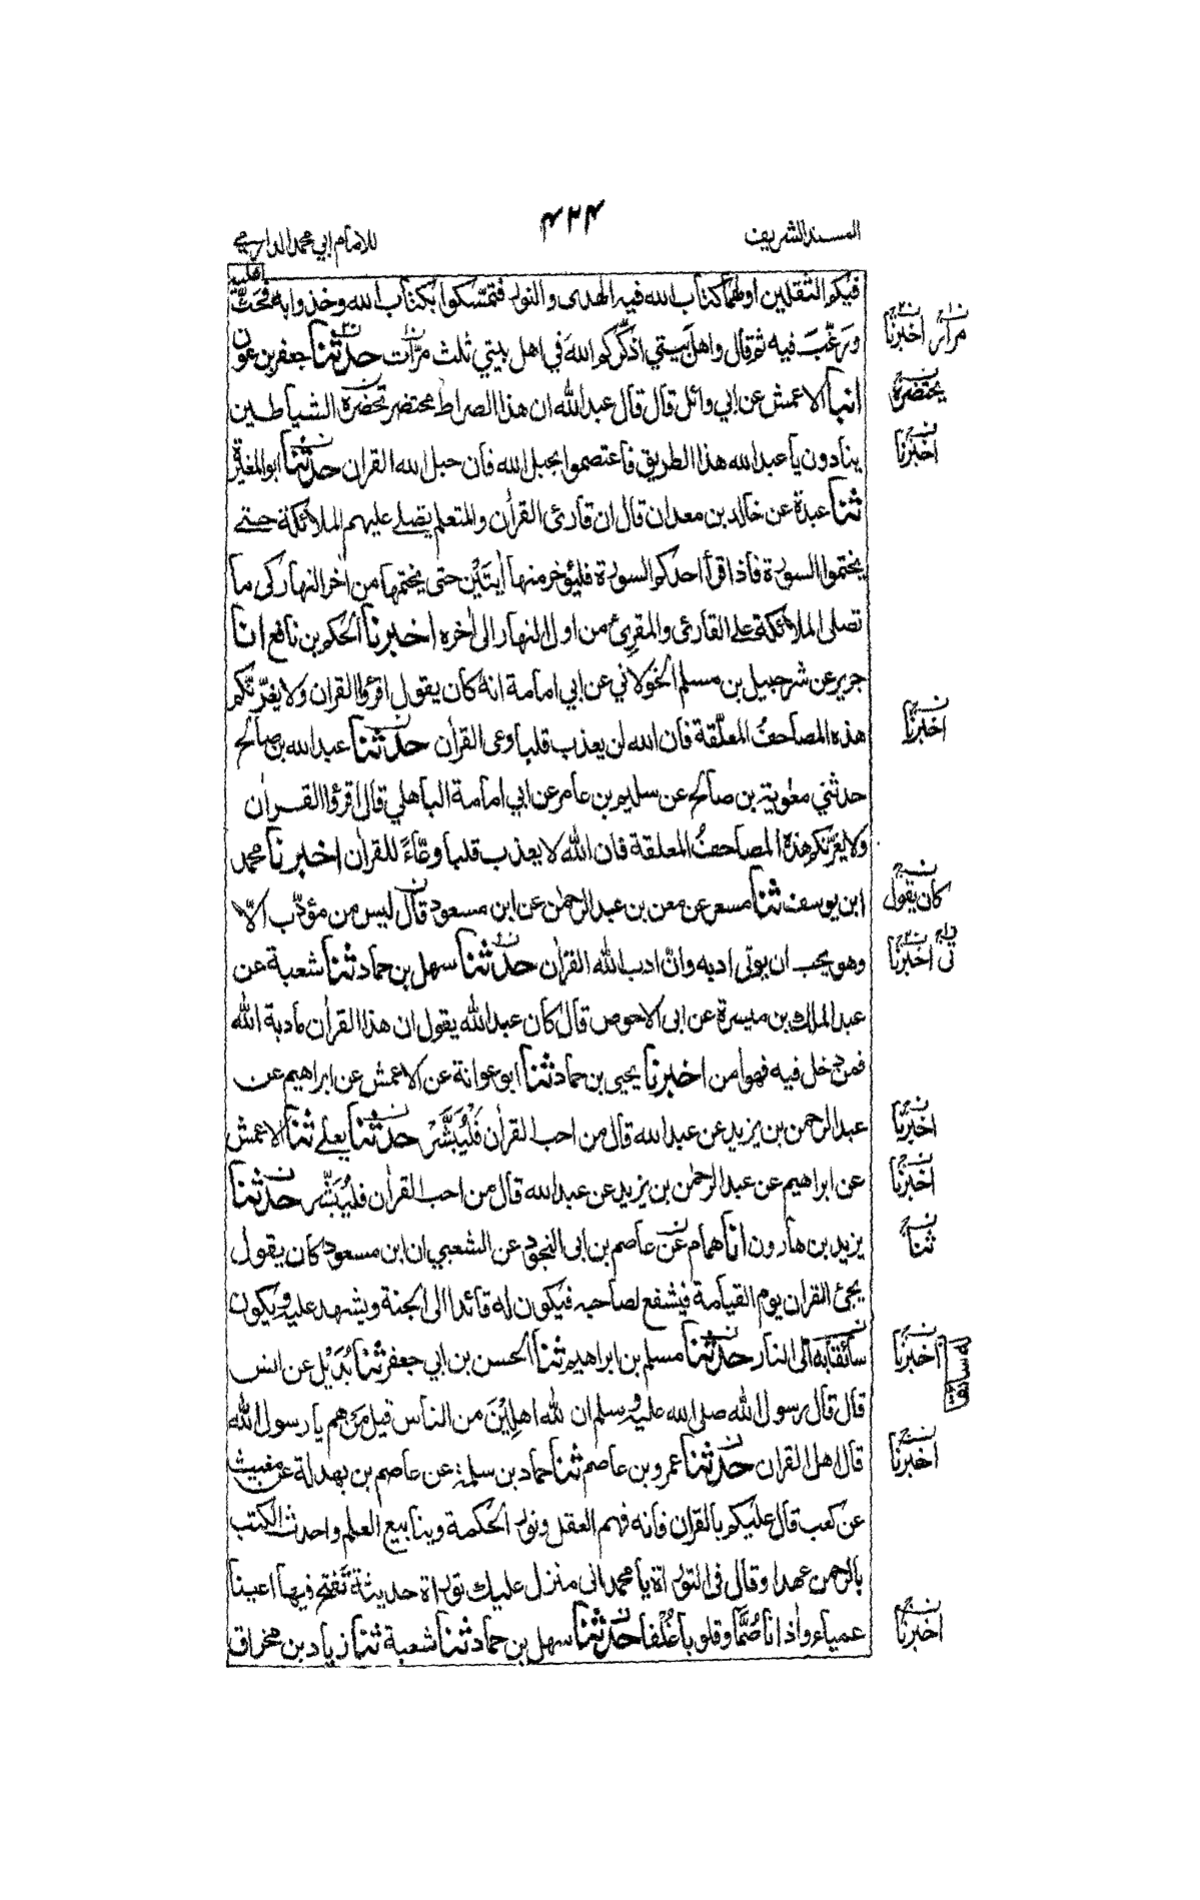 المسند الشريف
۴۲۴
للامام ابي محمد الدارمي
فيكم الثقلين اولهما كتاب الله فيه الهدى والنور فتمسكوا بكتاب الله وخذوا به فحث عليه
ورغّب فيه ثم قال واهل بيتي اذكركم الله في اهل بيتي ثلث مرّات حدثنا جعفر بن عون
انبأ الاعمش عن ابي وائل قال قال عبد الله ان هذا الصراط محتضر تحضره الشياطين
ينادون يا عبد الله هذا الطريق فاعتصموا بحبل الله فان حبل الله القران حدثنا ابو المغيرة
ثنا عبدة عن خالد بن معدان قال ان قارئ القران والمتعلم يصلي عليهم الملائكة حتى
يختموا السورة فاذا اقرأ احدكم السورة فليؤخر منها ايتَيْن حتى يختمها من اخر النهار كى ما
تصلى الملائكة على القارئ والمقرِئ من اول النهار الى اخره اخبرنا الحكم بن نافع انا
جرير عن شرحبيل بن مسلم الخولاني عن ابي امامة انه كان يقول اقرؤا القران ولا يغرّنّكم
هذه المصاحفُ المعلّقة فان الله لن يعذب قلبا وعى القران حدثنا عبد الله بن صالح
حدثني معوية بن صالح عن سليم بن عامر عن ابي امامة الباهلي قال اقرؤا القران
ولا يغرّنّكم هذه المصاحفُ المعلقة فان الله لا يعذب قلبا وعَّاءً للقران اخبرنا محمد
ابن يوسف ثنا مسعر عن معن بن عبد الرحمن عن ابن مسعود قال ليس من مؤدّب الّا
وهو يحب ان يوتى ادبه وانّ ادب الله القران حدثنا سهل بن حماد ثنا شعبة عن
عبد الملك بن ميسرة عن ابى الاحوص قال كان عبد الله يقول ان هذا القران مادبة الله
فمن دخل فيه فهو امن اخبرنا يحيى بن حماد ثنا ابو عوانة عن الاعمش عن ابراهيم عن
عبد الرحمن بن يزيد عن عبد الله قال من احب القران فَلْيُبَشَّرْ حدثنا يعلى ثنا الاعمش
عن ابراهيم عن عبد الرحمن بن يزيد عن عبد الله قال من احب القران فليُبَشَّر حدثنا
يزيد بن هارون انا همام عن عاصم بن ابى النجود عن الشعبي ان ابن مسعود كان يقول
يجئ القران يوم القيامة فيشفع لصاحبه فيكون له قائدا الى الجنة ويشهد عليه ويكون
سائقا به الى النار حدثنا مسلم بن ابراهيم ثنا الحسن بن ابي جعفر ثنا بُدَيْل عن انس
قال قال رسول الله صلى الله عليه وسلم ان لله اهلِيْنَ من الناس قيل مَن هم يا رسول الله
قال اهل القران حدثنا عمرو بن عاصم ثنا حماد بن سلمة عن عاصم بن بهدلة عن مغيث
عن كعب قال عليكم بالقران فانه فهم العقل ونور الحكمة وينابيع العلم واحدث الكتب
بالرحمن عهدا وقال فى التوراة يا محمد انى منزل عليك توراة حديثة تفتح فيها اعينا
عمياء واذانا صُمًّا وقلوبا غُلْفا حدثنا سهل بن حماد ثنا شعبة ثنا زياد بن مخراق
مرار اخبرنا
يحتضره
اخبرنا
اخبرنا
كان يقول
اخبرنا
اخبرنا
اخبرنا
ثنا
اخبرنا
له سائقا
اخبرنا
اخبرنا